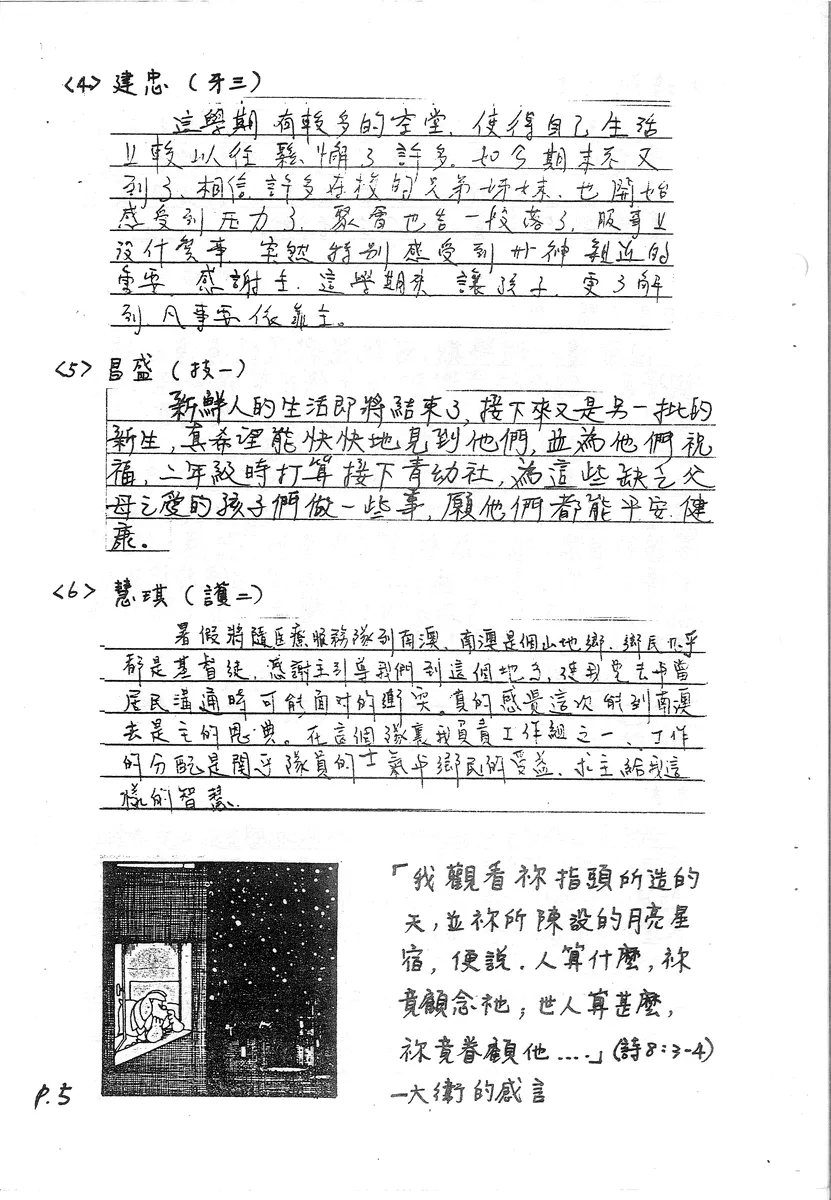 <4> 建忠 (牙三)
這學期有較多的空堂，使得自己生活
上較以往鬆懈了許多。如今期末又
到了，相信許多在校的兄弟姊妹，也開始
感受到压力了，聚會也告一段落了，服事上
没什麼事，突然特別感受到神親近的
重要，感謝主，這學期來讓孩子，更了解
到凡事要依靠主。
<5> 昌盛 (技一)
新鮮人的生活即將結束了，接下來又是另一批的
新生，真希望能快快地見到他們，並為他們祝
福，二年級時打算接下青幼社，為這些缺乏父
母之愛的孩子們做一些事，願他們都能平安、健
康。
<6> 慧琪 (護二)
暑假將隨医療服務隊到南澳，南澳是個山地鄉，鄉民几乎
都是基督徒，感謝主引導我們到這個地方，使我要去與當
居民溝通時可能面对的衝突。真的感覺這次能到南澳
去是主的恩典。在這個隊裏我負責工作組之一，工作
的分配是関乎隊員的士氣与鄉民的受益，求主給我這
樣的智慧。
「我觀看祢指頭所造的
天，並祢所陳設的月亮星
宿，便說．人算什麼，祢
竟顧念祂；世人算甚麼，
祢竟眷顧他....」(詩8:3-4)
—大衛的感言
P.5